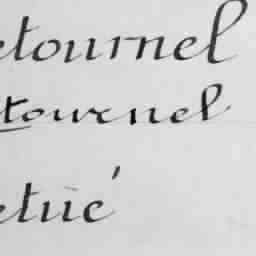 etournel
tournel
etué